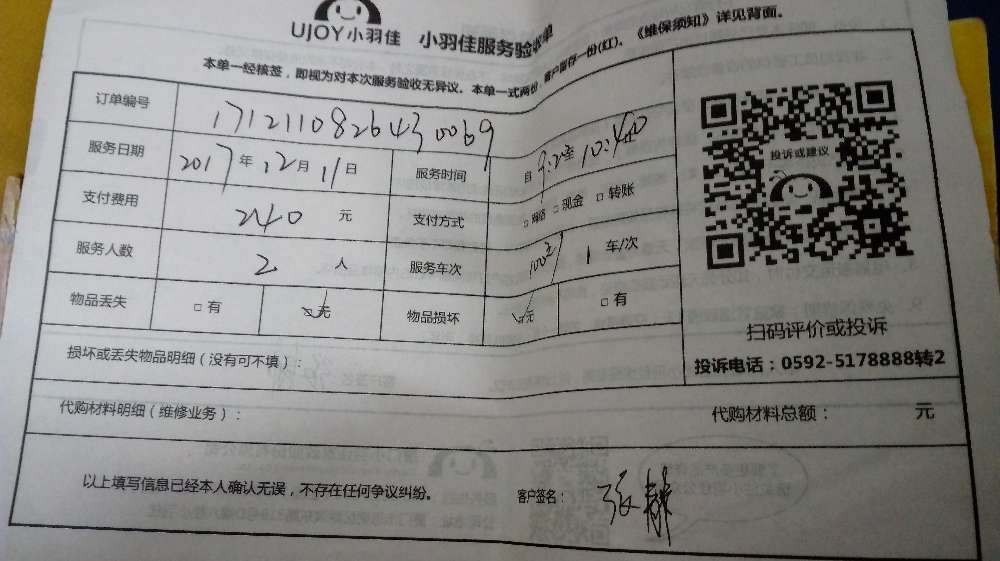 UJOY小羽佳 小羽佳服务验收单
本单一经核签，即视为对本次服务验收无异议。本单一式两份，客户留存一份(红)。《维保须知》详见背面。
订单编号 1712110826430069
服务日期 2017年12月11日 服务时间 自9:2至10:40
支付费用 240元 支付方式 □网络 □现金 □转账
服务人数 2人 服务车次 1车/次
物品丢失 □有 无 物品损坏 无 □有
损坏或丢失物品明细（没有可不填）：
代购材料明细（维修业务）： 代购材料总额： 元
以上填写信息已经本人确认无误，不存在任何争议纠纷。 客户签名：
投诉或建议
扫码评价或投诉
投诉电话：0592-5178888转2